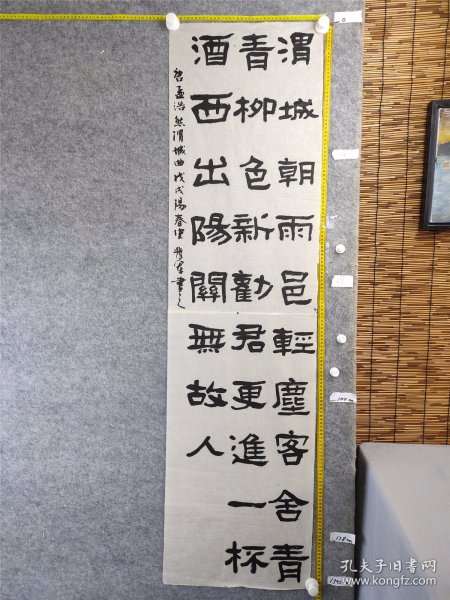 渭城朝雨邑輕塵客舍青
青柳色新勸君更進一杯
酒西出陽關無故人
孟浩然渭城曲戊戌陽春
書之
孔夫子旧书网
www.kongfz.com